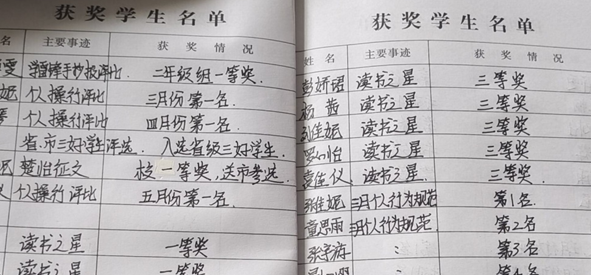 获奖学生名单
名 主要事迹 获奖情况
雯 手抄报评比 二年级组一等奖.
妮 个人操行评比 三月份第一名.
个人操行评比 四月份第一名.
省.市三好学生评选. 入选省级三好学生.
征文 校一等奖,送市参选.
个人操行评比 五月份第一名.
读书之星 一等奖
读书之星 一等奖
获奖学生名单
姓名 主要事迹 获奖情况
彭娇珺 读书之星 三等奖
杨茜 读书之星 三等奖
刘佳妮 读书之星 三等奖
罗心怡 读书之星 三等奖
袁佳仪 读书之星 三等奖
张维妮 三月个人行为规范 第1名
童思雨 三月个人行为规范 第2名
张 : 第3名